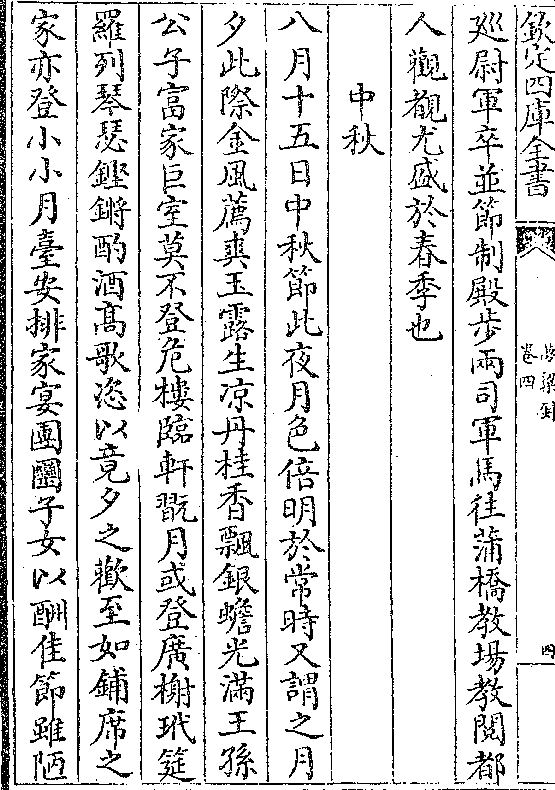 欽定四庫全書
夢粱録
卷四
四
廵尉軍卒並節制殿步兩司軍馬往蒲橋教場教閱都
人觀覩尤盛於春季也
中秋
八月十五日中秋節此夜月色倍明於常時又謂之月
夕此際金風薦爽玉露生凉丹桂香飄銀蟾光滿王孫
公子富家巨室莫不登危樓臨軒翫月或登廣榭玳筵
羅列琴瑟鏗鏘酌酒髙歌恣以竟夕之歡至如鋪席之
家亦登小小月臺安排家宴團圞子女以酬佳節雖陋